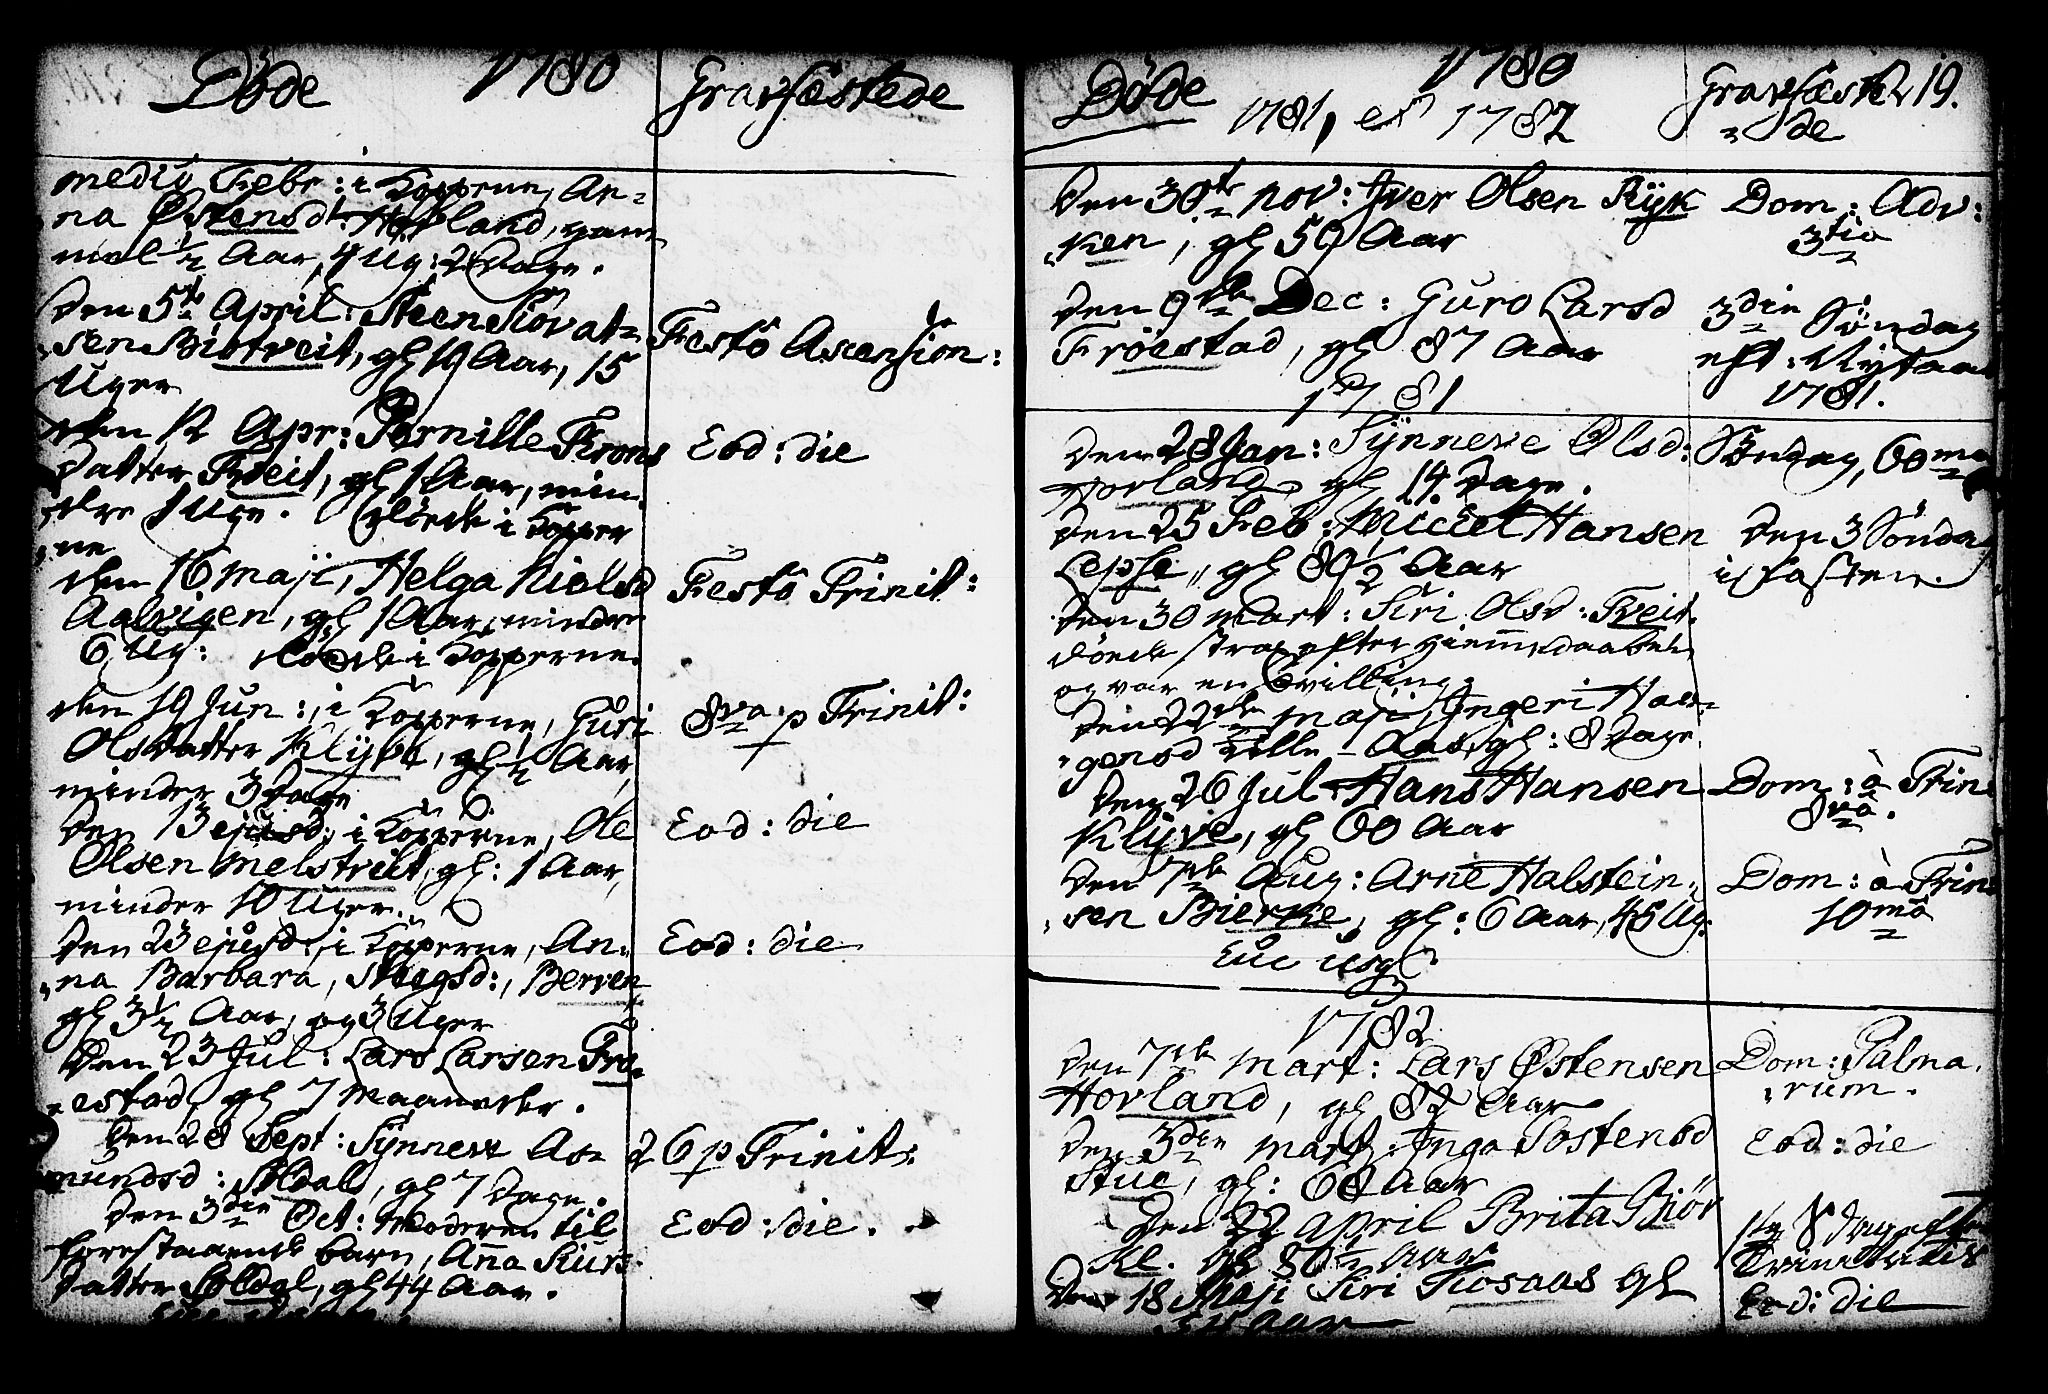 Døde 1780 Gravfæstede
medio Febr: i Kopperne, An-
na Østensdr Hofland, gam-
mel 1/2 Aar, 4 Ug: 2 Dage.
Den 5te April: Steen Siovat-
sen Biotveit, gl 19 Aar, 15
Uger
Festo Ascension:
den 12 Apr: Pernille Trons
datter Tveit, gl 1 Aar, min-
dre 1 Uge. Døede i Kopper
ne
Eod: die
den 16 maji, Helga Nielsd
Aalvigen, gl 1 Aar, mindre
6 Ug: døede i Kopperne.
Festo Trinit:
den 19 Jun: i Kopperne, Guri
Olsdatter Klyve, gl 1/2 Aar,
minder 3 Dage
8va p Trinit:
Den 13 ejusd: i Kopperne, Ole
Olsen Melstveit, gl: 1 Aar,
minder 10 Uger.
Eod: die
Den 23 ejusd: i Kopperne, An-
na Barbara, Stegsd:, Berven
gl 3 1/2 Aar, og 3 Uger
Eod: die
Den 23 Jul: Lars Larsen Frø-
estad, gl 7 Maaneder.
Den 28 Sept: Synneve As-
mundsd: Soldal, gl 7 Dage.
26 p Trinit:
Den 3die Oct: Moderen til
forestaaende barn, Anna Siurs
datter Soldal, gl 44 Aar.
Eod: die.
Døde 1780 Gravfæste 19.
1781, et 1782 de
Den 30te nov: Iver Olsen Ryk
ken, gl 59 Aar
Dom: Adv:
3tia
Den 9de Dec: Guro Larsd
Frøestad, gl 87 Aar
3die Søndag
eft: Nytaar
1781.
1781
Den 28 Jan: Synneve Olsd:
Hovland, gl 14 Dage.
Søndag, 60ma
Den 25 Feb: Michel Hansen
Lepse, gl 80 1/2 Aar
Den 3 Søndag
i fasten.
Den 30 Mart: Siri Olsd: Tveit.
døede strax efter Hiemmedaaben
og var en Tvilling
Den 22de Maji, Ingeri Hal-
gensd Lille-Aas, gl: 8 Dage.
Den 26 Jul: Hans Hansen
Klyve, gl 60 Aar
Dom: à Trin
8va.
Den 7de Aug: Arne Halstein-
sen Bierke, gl: 6 Aar, 45 Ug:
Dom: à Trin
10ma
1782
Den 7de Mart: Lars Østensen
Hovland, gl 82 Aar
Dom: Palma
rum.
Den 3die Mart: Inga Tostensd
Stue, gl: 60 Aar
Eod: die
Den 22 April Brita Biør
Ke. gl 80 1/2 Aar
Den 18 Maji Siri Tiosaas gl
Aar
Eod: die